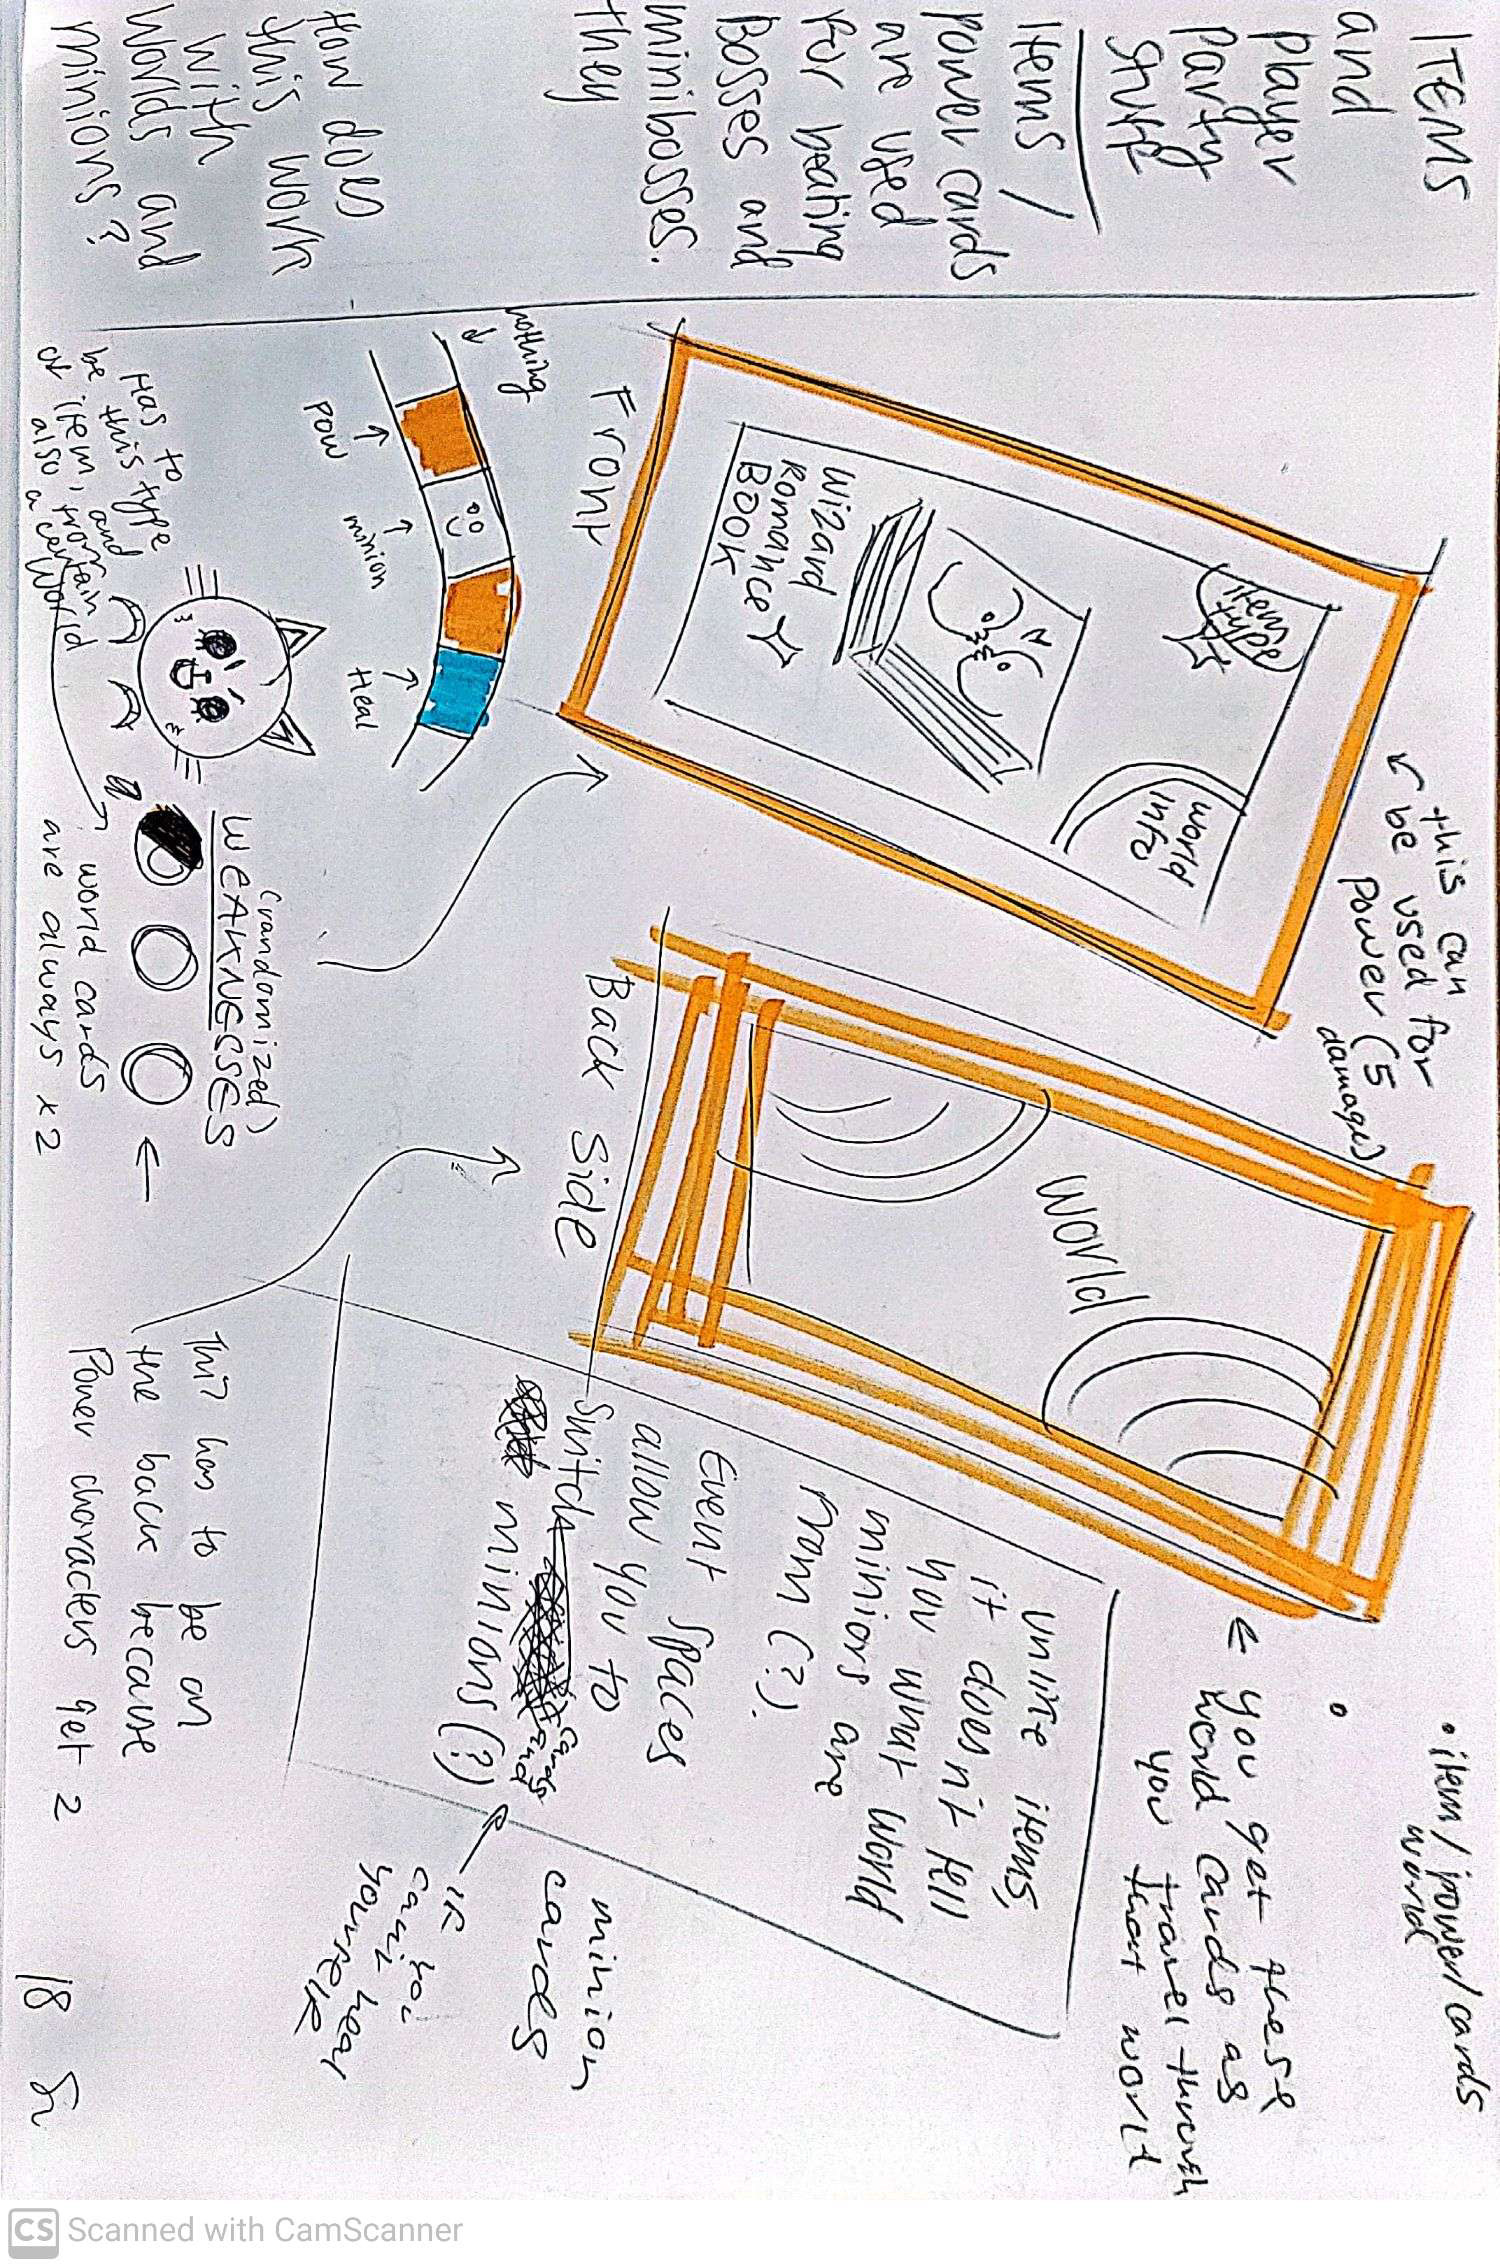 ITEMS
and
player
party
stuff
Items /
power cards
are used
for beating
Bosses and
minibosses.
They
How does
this work
with
worlds and
minions?
• item/power/cards
world
this can
← be used for
power (5
damages)
items
type
world
info
Wizard
Romance
Book
Front
World
Back Side
← you get these
world cards as
you travel through
that world
unlike items,
it doesn't tell
you what world
minions are
from (?).
Event spaces
allow you to
switch
cards
and
minions (?)
minion
cards
If
can you
heal
yourself
nothing
pow
minion
Heal
Has to
be this type
of item, and
also a
world
(randomized)
WEAKNESSES
world cards
are always x2
This has to be on
the back because
Power characters get 2
18
CS Scanned with CamScanner